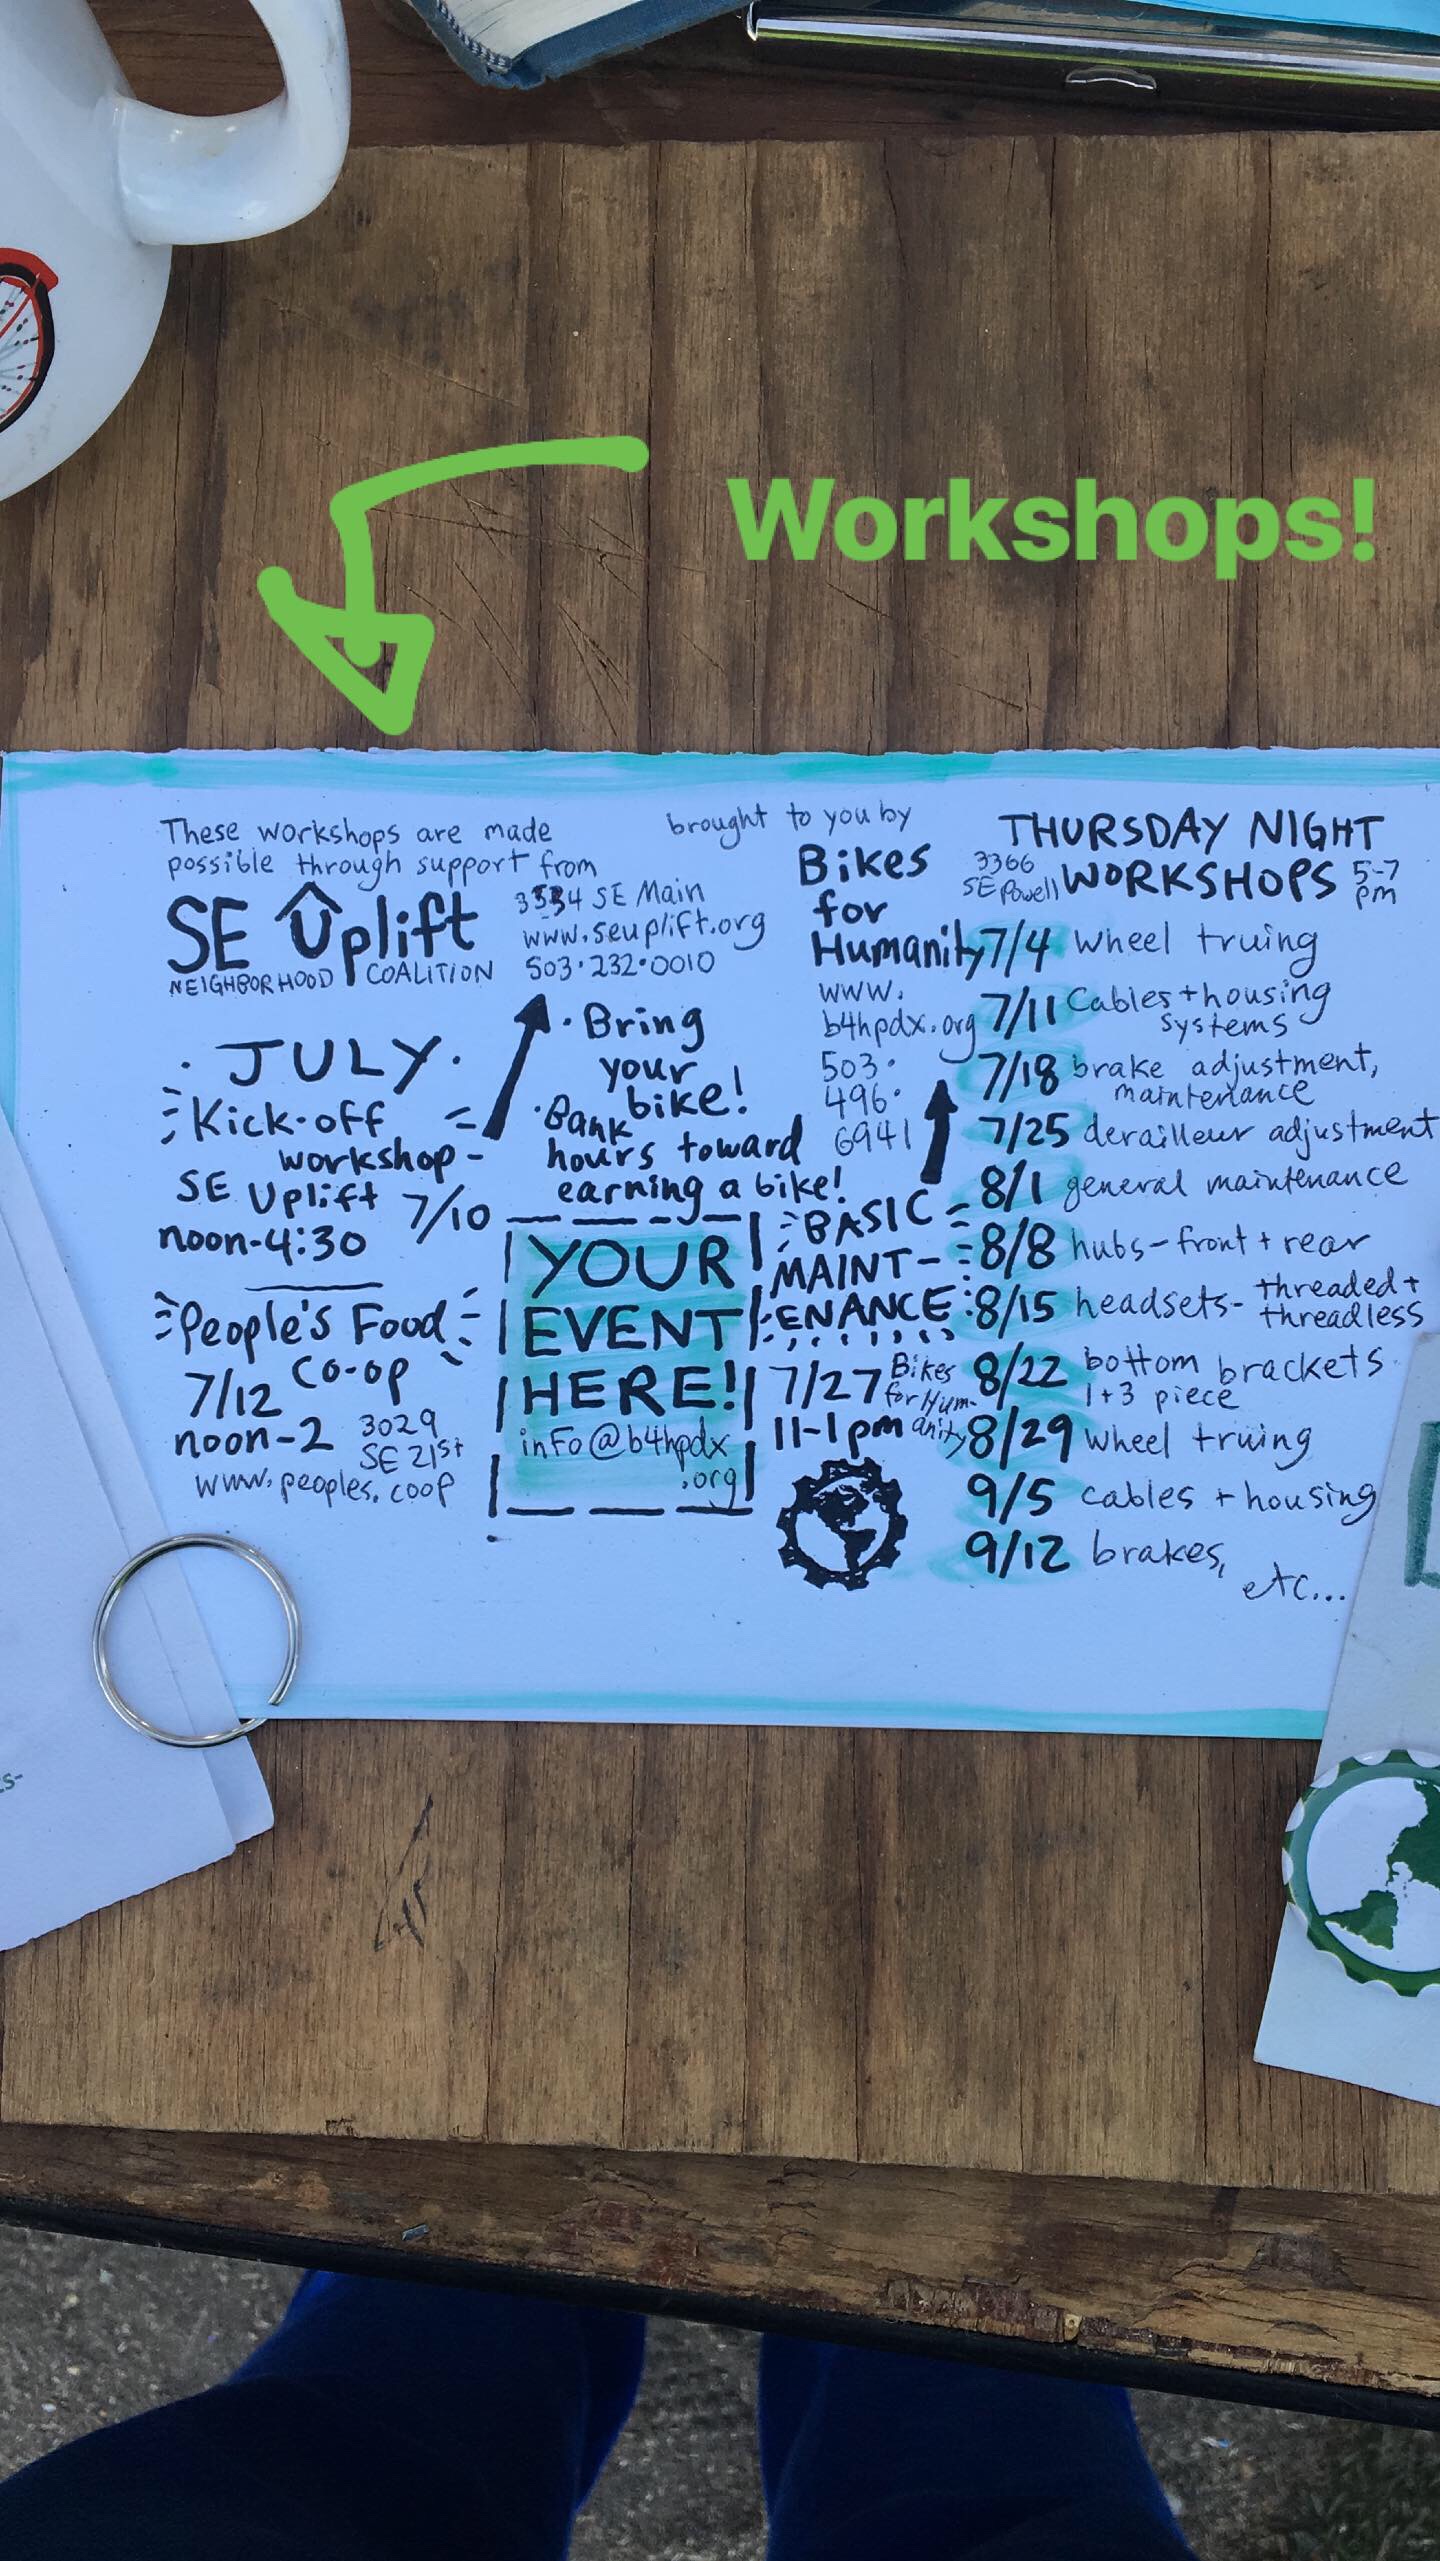 Workshops!
These workshops are made
possible through support from
SE Uplift
NEIGHBORHOOD COALITION
3534 SE Main
www.seuplift.org
503.232.0010
· JULY ·
Kick-off
workshop-
SE Uplift 7/10
noon-4:30
People's Food
Co-op
7/12
noon-2
3029
SE 21st
www.peoples.coop
· Bring
your
bike!
· Bank
hours toward
earning a bike!
YOUR
EVENT
HERE!
info@b4hpdx
.org
brought to you by
Bikes
for
Humanity
www.
b4hpdx.org
503.
496.
6941
BASIC
MAINT-
ENANCE
7/27
11-1pm
Bikes
for Hum-
anity
THURSDAY NIGHT
WORKSHOPS
3366
SE Powell
5-7
pm
7/4 wheel truing
7/11 Cables + housing
systems
7/18 brake adjustment,
maintenance
7/25 derailleur adjustment
8/1 general maintenance
8/8 hubs-front + rear
8/15 headsets- threaded +
threadless
8/22 bottom brackets
1+3 piece
8/29 wheel truing
9/5 cables + housing
9/12 brakes,
etc...